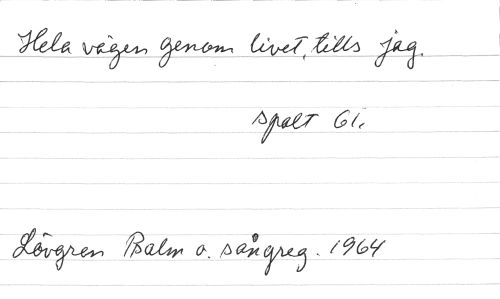 Hela vägen genom livet, tills jag.
spalt 61.
Lövgren Psalm o. sångreg. 1964